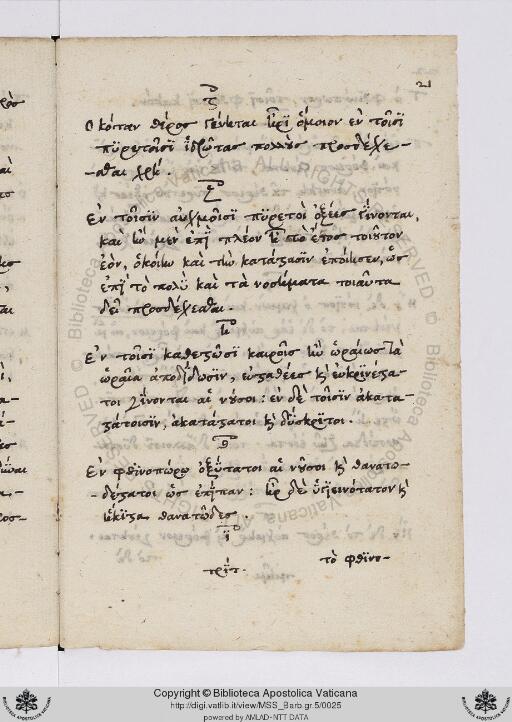 21
ς´
Ὁκόταν θέρος γένηται ἦρι ὅμοιον ἐν τοῖσι
πυρετοῖσι ἱδρῶτας πολλοὺς προσδέχε-
-σθαι χρή.
ζ´
Ἐν τοῖσιν αὐχμοῖσι πυρετοὶ ὀξέες γίνονται,
καὶ ἢν μὲν ἐπὶ πλέον ᾖ τὸ ἔτος τοιοῦτον
ἐὸν, ὁκοίην καὶ τὴν κατάστασιν ἐποίησεν, ὡς
ἐπὶ τὸ πολὺ καὶ τὰ νοσήματα τοιαῦτα
δεῖ προσδέχεσθαι.
η´
Ἐν τοῖσι καθεστῶσι καιροῖς ἢν ὡραίως τὰ
ὡραῖα ἀποδιδῶσιν, εὐσταθέες κ εὐκρινέστα-
τοι γίνονται αἱ νοῦσοι: ἐν δὲ τοῖσιν ἀκατα-
στάτοισιν, ἀκατάστατοι κ δύσκριτοι.
θ´
Ἐν φθινοπώρῳ ὀξύταται αἱ νοῦσοι κ θανατω-
-δέσταται ὡς ἐπίπαν: ἦρ δὲ ὑγιεινότατον κ
ἥκιστα θανατῶδες.
ι´
τὸ φθινο-
Copyright © Biblioteca Apostolica Vaticana
http://digi.vatlib.it/view/MSS_Barb.gr.5/0025
powered by AMLAD-NTT DATA